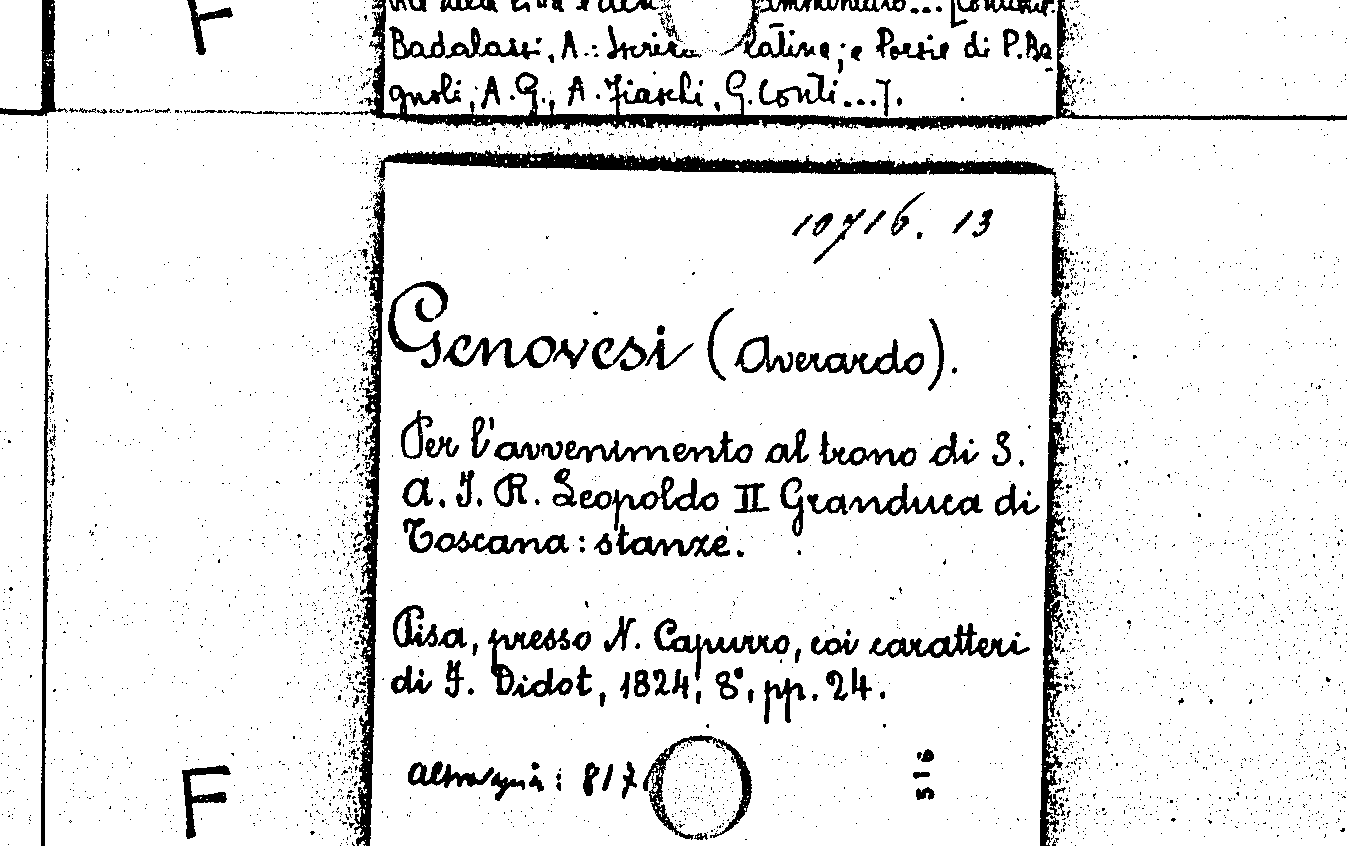 F
Badalassi, A.: Iscriz latine; e Poesie di P. Ba
gnoli, A.G., A. Fiaschi, G. Conti...].
10716. 13
Genovesi (Averardo).
Per l'avvenimento al trono di S.
A. I. R. Leopoldo II Granduca di
Toscana: stanze.
Pisa, presso N. Capurro, coi caratteri
di F. Didot, 1824, 8°, pp. 24.
F
817
516